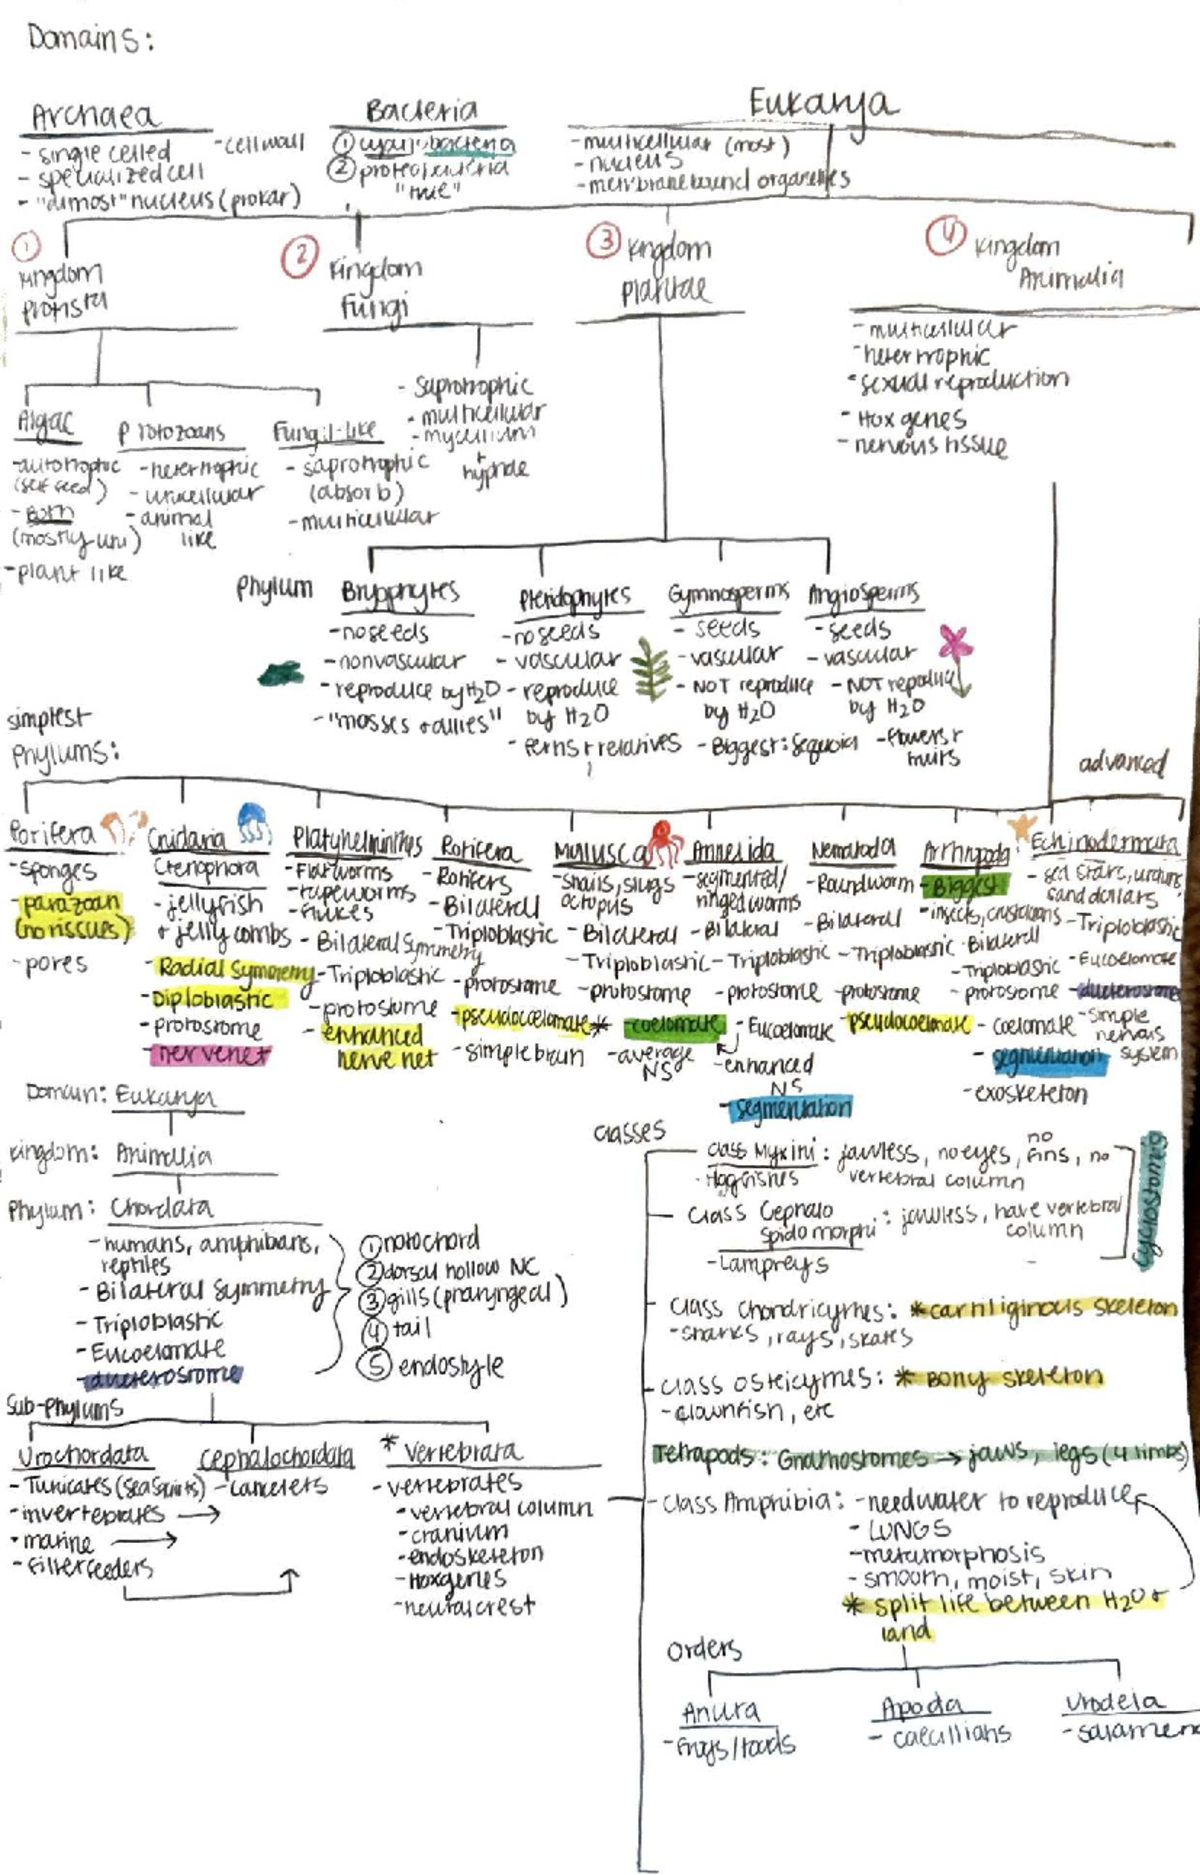 Domains:
Archaea
- single celled
- specialized cell
- "almost" nucleus (prokar)
- cell wall
Bacteria
① cyanobacteria
② proteobacteria
"true"
Eukarya
- multicellular (most)
- nucleus
- membrane bound organelles
①
Kingdom
Protista
②
Kingdom
Fungi
③ Kingdom
Plantae
④ Kingdom
Animalia
- multicellular
- hetertrophic
- sexual reproduction
- Hox genes
- nervous tissue
- Saprotrophic
- multicellular
- mycelium
+
hyphae
Algae
- autotrophic
(self feed)
- Both
(mostly uni)
- plant like
Protozoans
- hetertrophic
- unicellular
- animal
like
Fungi-like
- saprotrophic
(absorb)
- multicellular
Phylum
Bryophytes
- no seeds
- nonvascular
- reproduce by H2O
- "mosses + allies"
Pteridophytes
- no seeds
- vascular
- reproduce
by H2O
- ferns + relatives
Gymnosperms
- seeds
- vascular
- NOT reproduce
by H2O
- Biggest: Sequoia
Angiosperms
- seeds
- vascular
- NOT reproduce
by H2O
- flowers +
fruits
simplest
Phylums:
advanced
Porifera
- sponges
- parazoan
(no tissues)
- pores
Cnidaria
Ctenophora
- jellyfish
+ jelly combs
- Radial Symmetry
- Diploblastic
- protostome
- nerve net
Platyhelminthes
- Flatworms
- tapeworms
- flukes
- Bilateral Symmetry
- Triploblastic
- protostome
- enhanced
nerve net
Rotifera
- Rotifers
- Bilateral
- Triploblastic
- protostome
- pseudocoelomate*
- simple brain
Mulusca
- Snails, slugs
octopus
- Bilateral
- Triploblastic
- protostome
- coelomate
- average
NS
Annelida
- segmented/
ringed worms
- Bilateral
- Triploblastic
- protostome
- Eucoelomate
- enhanced
NS
- segmentation
Nematoda
- Roundworm
- Bilateral
- Triploblastic
- protostome
- pseudocoelomate
Arthropoda
- Biggest
- insects, crustaceans
- Bilateral
- Triploblastic
- protostome
- coelomate
- segmentation
- exoskeleton
Echinodermata
- sea stars, urchins,
sand dollars
- Triploblastic
- Eucoelomate
- dueterostome
- simple
nervous
system
Domain: Eukarya
Kingdom: Animalia
Phylum: Chordata
- humans, amphibans,
reptiles
- Bilateral Symmetry
- Triploblastic
- Eucoelomate
- dueterostome
① notochord
② dorsal hollow NC
③ gills (pharyngeal)
④ tail
⑤ endostyle
Sub-phylums
Urochordata
- Tunicates (Sea Squirts)
- invertebrates →
- marine →
- filter feeders
Cephalochordata
- Lancelets
* Vertebrata
- vertebrates
- vertebral column
- cranium
- endoskeleton
- Hox genes
- neural crest
Classes
class Myxini: jawless, no eyes, no fins, no
vertebral column
- Hagfishes
class Cephalo
spidomorphi: jawless, have vertebral
column
- Lampreys
Cyclostomes
class chondricymes: *cartiliginous skeleton
- sharks, rays, skates
class osteicymes: * Bony skeleton
- clownfish, etc
Tetrapods: Gnathostomes → jaws, legs (4 limbs)
- class Amphibia: - need water to reproduce
- LUNGS
- metamorphosis
- smooth, moist, skin
* split life between H2O +
land
Orders
Anura
- frogs/toads
Apoda
- caecillians
Urodela
- salamen